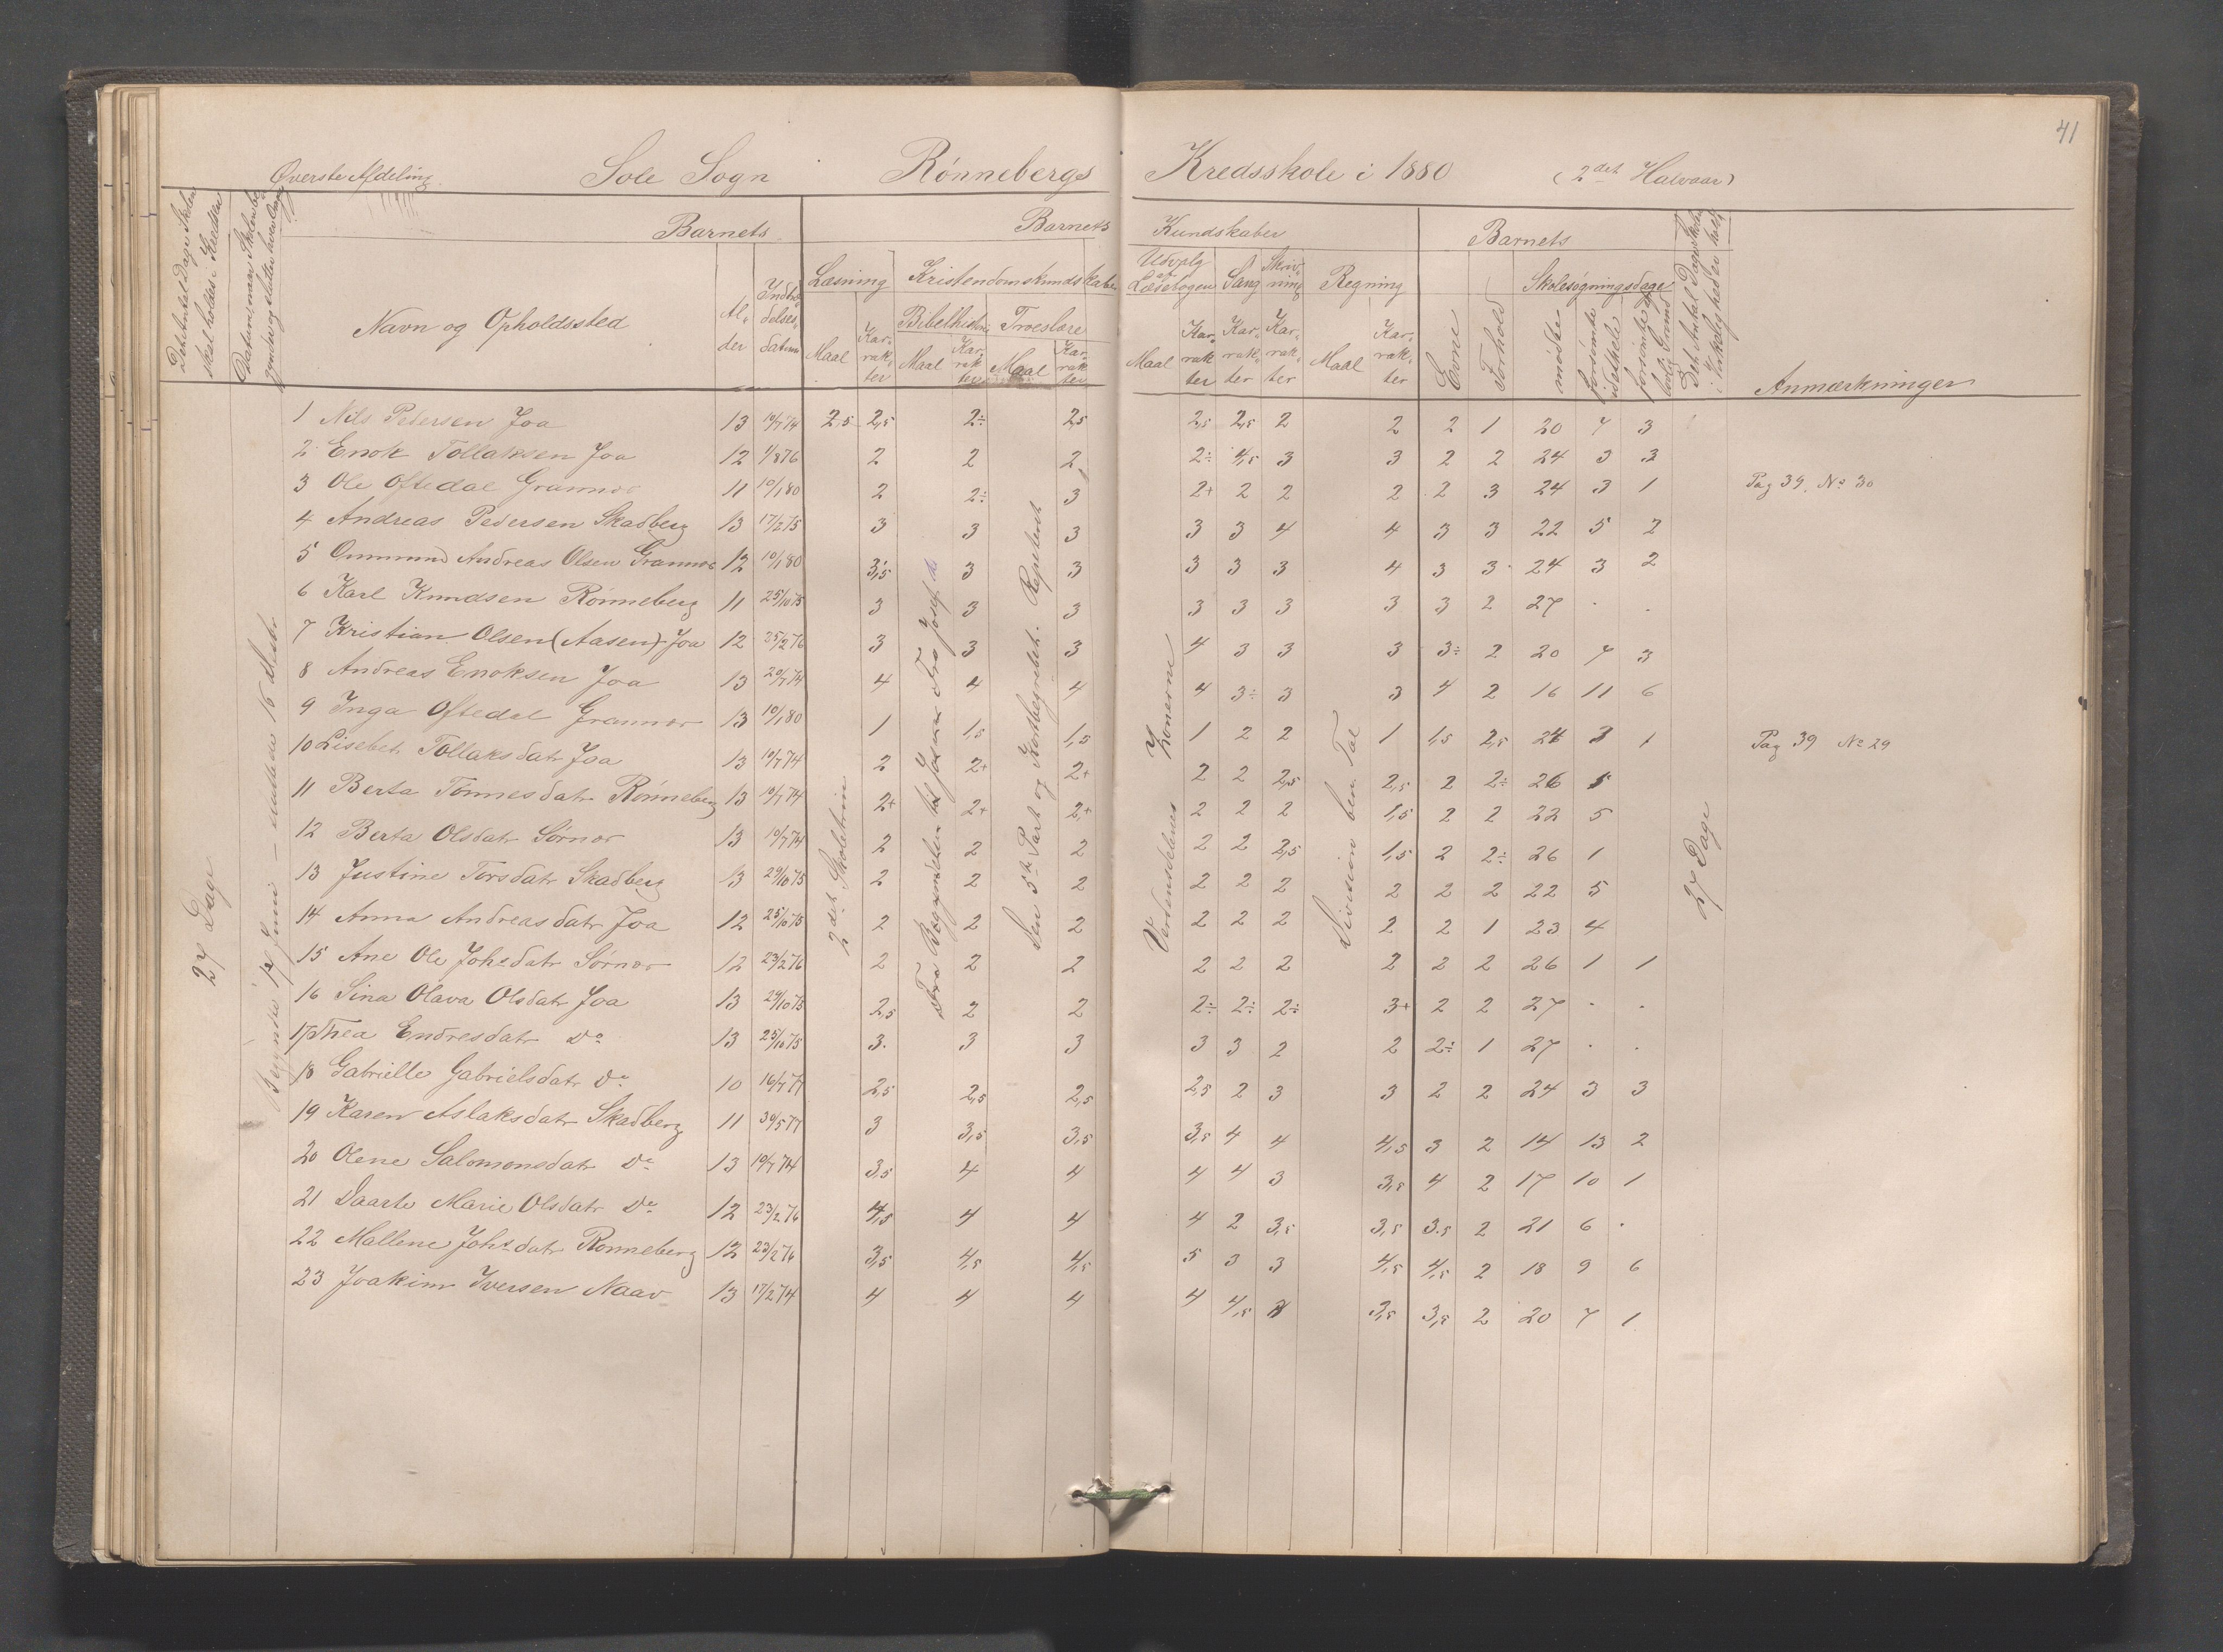 41
Øverste Afdeling. Sole Sogn Rønnebergs Kredsskole i 1880 (2det Halvaar)
Det Antal Dage Skolen skal holdes i Kredsen
Datum, naar Skolen begynder og slutter hver Omgang
Barnets Barnets Kundskaber Barnets
Navn og Opholdssted
Alder
Indtrædelsesdatum
Læsning Kristendomskundskaber Udvalg af Læsebogen Sang Skrivning Regning
Bibelhistorie Troeslære
Maal Karrakter Maal Karrakter Maal Karrakter Maal Karrakter Karrakter Karrakter Maal Karrakter
Evne Forhold
Skolesøgningsdage
mødte forsømte i det hele forsømte af lovl. Grund
Det Antal Dage Skolen i Virkelighed er holdt
Anmærkninger
1 Nils Pedersen Joa 13 10/7 74 2,5 2,5 2÷ 2,5 2,5 2,5 2 2 2 1 20 7 3
2 Enok Tollaksen Joa 12 1/8 76 2 2 2 2÷ 4,5 3 3 2 2 24 3 3
3 Ole Oftedal Grannor 11 10/1 80 2 2÷ 3 2+ 2 2 2 2 3 24 3 1 Pag 39. No 30
4 Andreas Pedersen Skadberg 13 17/2 75 3 3 3 3 3 4 4 3 3 22 5 2
5 Gunmund Andreas Olsen Grannor 12 10/1 80 3,5 3 3 3 3 3 4 3 3 24 3 2
6 Karl Knudsen Rønneberg 11 25/10 75 3 3 3 3 3 3 3 3 2 27 . .
7 Kristian Olsen (Aasen) Joa 12 25/2 76 3 3 3 4 3 3 3 3÷ 2 20 7 3
8 Andreas Enoksen Joa 13 20/7 74 4 4 4 4 3÷ 3 3 4 2 16 11 6
9 Inga Oftedal Grannor 13 10/1 80 1 1,5 1,5 1 2 2 1 1,5 2,5 24 3 1 Pag 39 No 29
10 Lisebet Tollaksdatr Joa 13 10/7 74 2 2+ 2+ 2 2 2,5 2,5 2 2÷ 26 1
11 Berta Tønnesdatr Rønneberg 13 10/7 74 2+ 2+ 2+ 2 2 2 1,5 2 2 22 5
12 Berta Olsdatr Sørnor 13 10/7 74 2 2 2 2 2 2,5 1,5 2 2÷ 26 1
13 Justine Torsdatr Skadberg 13 29/10 75 2 2 2 2 2 2 2 2 2 22 5
14 Anna Andreasdatr Joa 12 25/10 75 2 2 2 2 2 2 2 2 1 23 4
15 Ane Ole Johsdatr Sørnor 12 23/2 76 2 2 2 2 2 2 2 2 2 26 1 1
16 Sina Olava Olsdatr Joa 13 29/10 75 2,5 2 2 2÷ 2÷ 2÷ 3+ 2 2 27 . .
17 Thea Endresdatr Do 13 25/10 75 3 3 3 3 3 2 2 2÷ 1 27 . .
18 Gabrielle Gabrielsdatr Do 10 16/7 77 2,5 2,5 2,5 2,5 2 3 3 2 2 24 3 3
19 Karen Aslaksdatr Skadberg 11 30/5 77 3 3,5 3,5 3,5 4 4 4,5 3 2 14 13 2
20 Olene Salomonsdatr Do 13 10/7 74 3,5 4 4 4 4 3 3,5 4 2 17 10 1
21 Daarte Marie Olsdatr Do 12 23/2 76 4,5 4 4 4 2 3,5 3,5 3,5 2 21 6 .
22 Mallene Johsdatr Rønneberg 12 23/2 76 3,5 4,5 4,5 5 3 3 4,5 4,5 2 18 9 6
23 Joakim Iversen Naav 13 17/2 74 4 4 4 4 4,5 3,5 3,5 2 20 7 1
27 Dage
Begyndte 1ste Juni – endte 16 Decbr
2det Skoletrin
Fra Begyndelsen til Josva Fra Josef
Den 5te Part og Kortbegrebet. Repeteret
Verdensdelenes Zonerne
Division ben. Tal
27 Dage